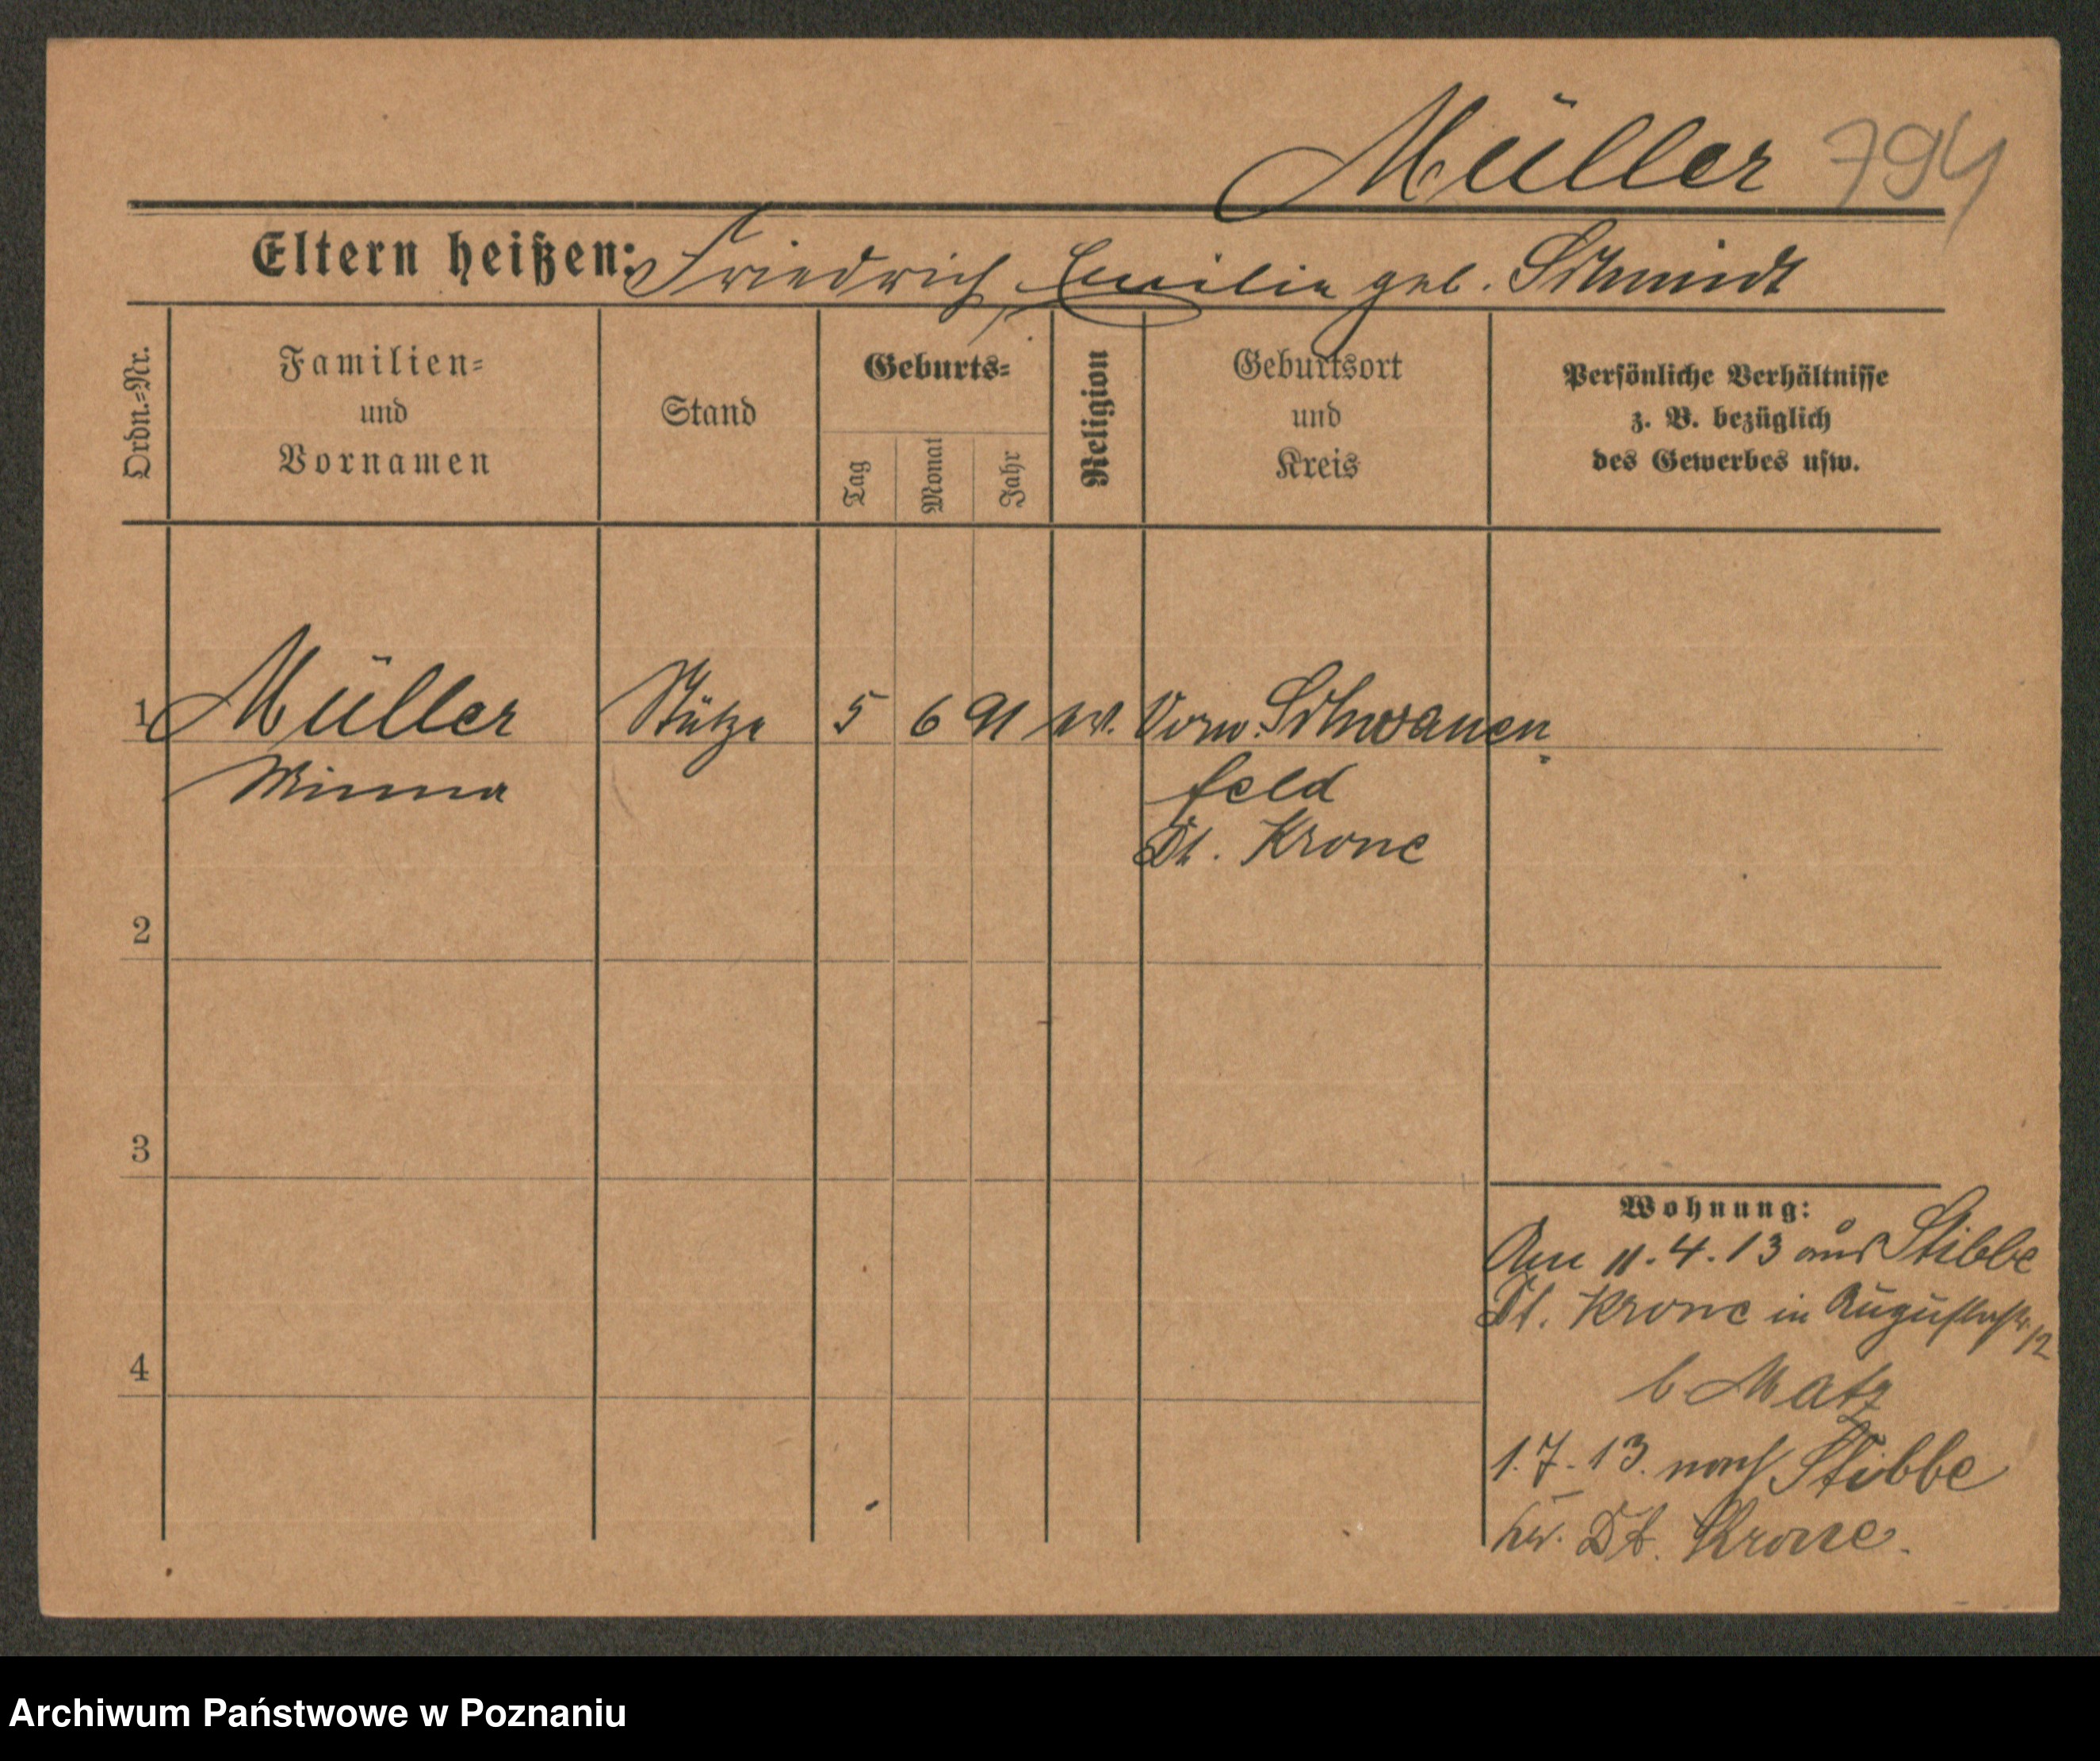 Müller 794
Eltern heißen: Friedrich, Emilie geb. Schmidt
Ordn.=Nr.
Familien=
und
Vornamen
Stand
Geburts=
Tag
Monat
Jahr
Religion
Geburtsort
und
Kreis
Persönliche Verhältnisse
z. B. bezüglich
des Gewerbes usw.
1 Müller Stütze 5 6 91 ev. Vorw. Schwanen
Minna feld
Dt. Krone
2
3
4
Wohnung:
Am 11.4.13 aus Stibbe
Dt. Krone in Augustastr. 12
b. Matz
1.7.13. nach Stibbe
Dt. Krone.
Archiwum Państwowe w Poznaniu